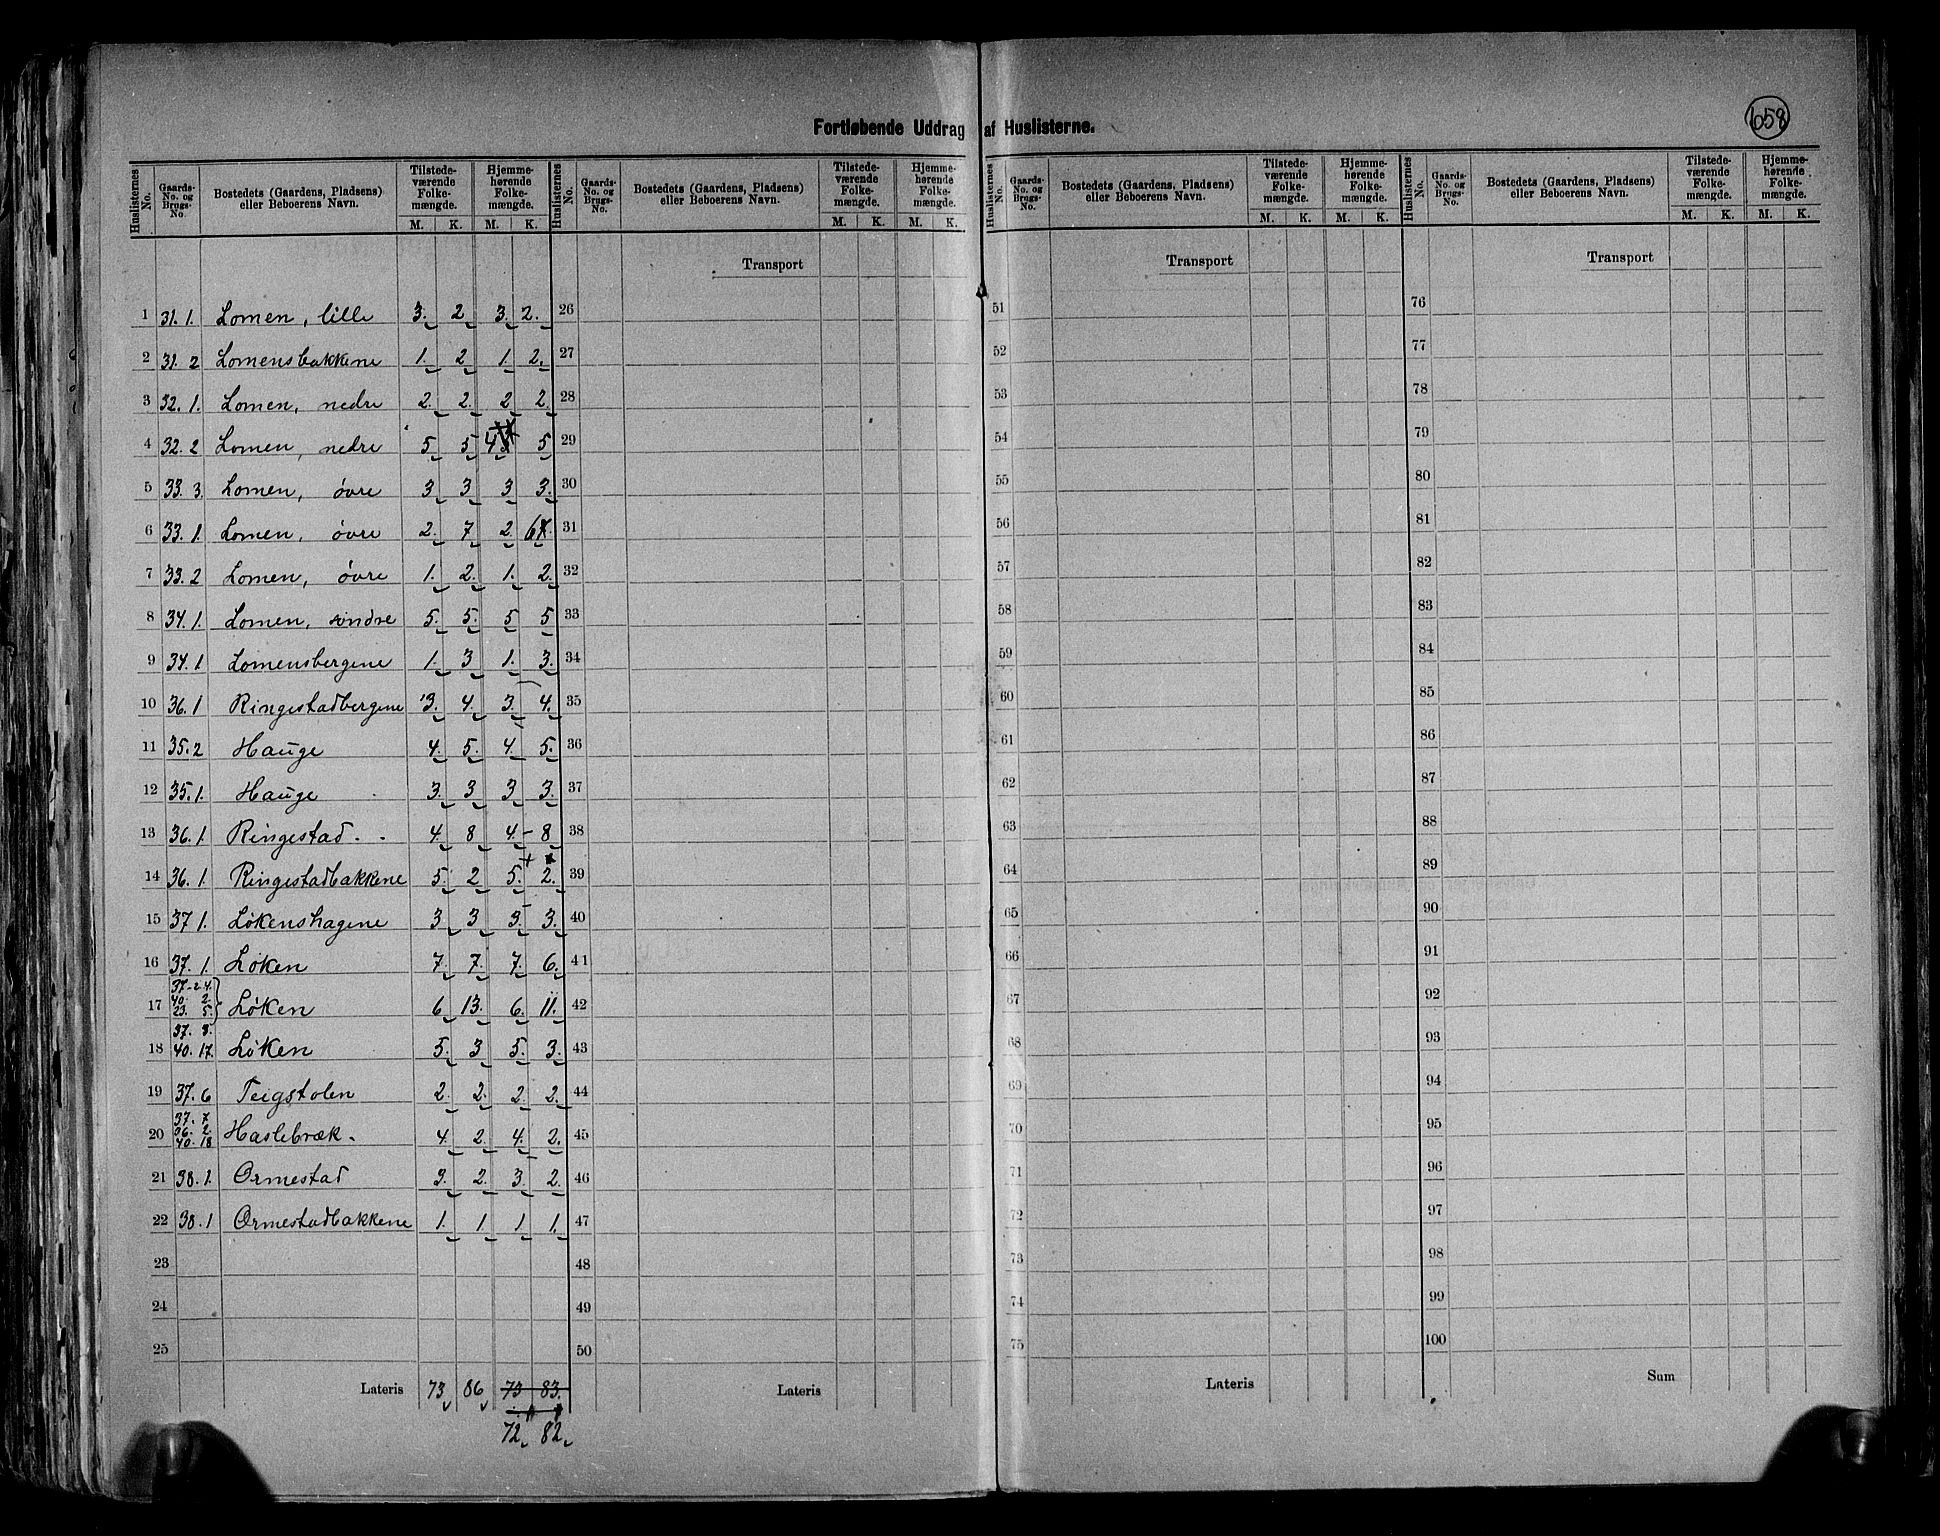 658
Fortløbende Uddrag af Huslisterne.
Huslisternes No. | Gaards-No. og Brugs-No. | Bostedets (Gaardens, Pladsens) eller Beboerens Navn. | Tilstede-værende Folke-mængde. M. K. | Hjemme-hørende Folke-mængde. M. K.
Huslisternes No. | Gaards-No. og Brugs-No. | Bostedets (Gaardens, Pladsens) eller Beboerens Navn. | Tilstede-værende Folke-mængde. M. K. | Hjemme-hørende Folke-mængde. M. K.
Huslisternes No. | Gaards-No. og Brugs-No. | Bostedets (Gaardens, Pladsens) eller Beboerens Navn. | Tilstede-værende Folke-mængde. M. K. | Hjemme-hørende Folke-mængde. M. K.
Huslisternes No. | Gaards-No. og Brugs-No. | Bostedets (Gaardens, Pladsens) eller Beboerens Navn. | Tilstede-værende Folke-mængde. M. K. | Hjemme-hørende Folke-mængde. M. K.
Transport Transport Transport
1 31. 1. Lomen, lille 3. 2 3. 2. 26 51 76
2 31. 2 Lomensbakkene 1. 2 1. 2. 27 52 77
3 32. 1. Lomen, nedre 2. 2. 2 2. 28 53 78
4 32. 2 Lomen, nedre 5 5 4 5 29 54 79
5 33. 3. Lomen, øvre 3 3 3 3. 30 55 80
6 33. 1. Lomen, øvre 2. 7 2. 6 7. 31 56 81
7 33. 2 Lomen, øvre 1. 2. 1. 2. 32 57 82
8 34. 1. Lomen, søndre 5. 5. 5 5 33 58 83
9 34. 1 Lomensbergene 1. 3 1. 3. 34 59 84
10 36. 1 Ringestadbergene 3. 4. 3. 4. 35 60 85
11 35. 2 Hauge 4. 5. 4. 5. 36 61 86
12 35. 1. Hauge 3. 3 3 3. 37 62 87
13 36. 1 Ringestad 4. 8 4. 8 38 63 88
14 36. 1. Ringestadbakkene 5. 2 5. 2. 39 64 89
15 37 1. Løkenshagene 3 3 3 3. 40 65 90
16 37. 1. Løken 7. 7. 7. 6. 41 66 91
37 - 2 4.
40. 2
23. 5.
17 Løken 6 13. 6. 11. 42 67 92
37. 8.
18 40. 17. Løken 5. 3 5. 3. 43 68 93
19 37. 6 Teigstolen 2. 2. 2. 2. 44 69 94
37. 7.
36. 2.
20 40. 18 Haslebræk. 4. 2. 4. 2. 45 70 95
21 38. 1. Ormestad 3. 2. 3. 2. 46 71 96
22 38. 1 Ormestadbakkene 1. 1. 1. 1. 47 72 97
23 48 73 98
24 49 74 99
25 50 75 100
Lateris 73 86 73 83. Lateris Lateris Sum
72. 82.